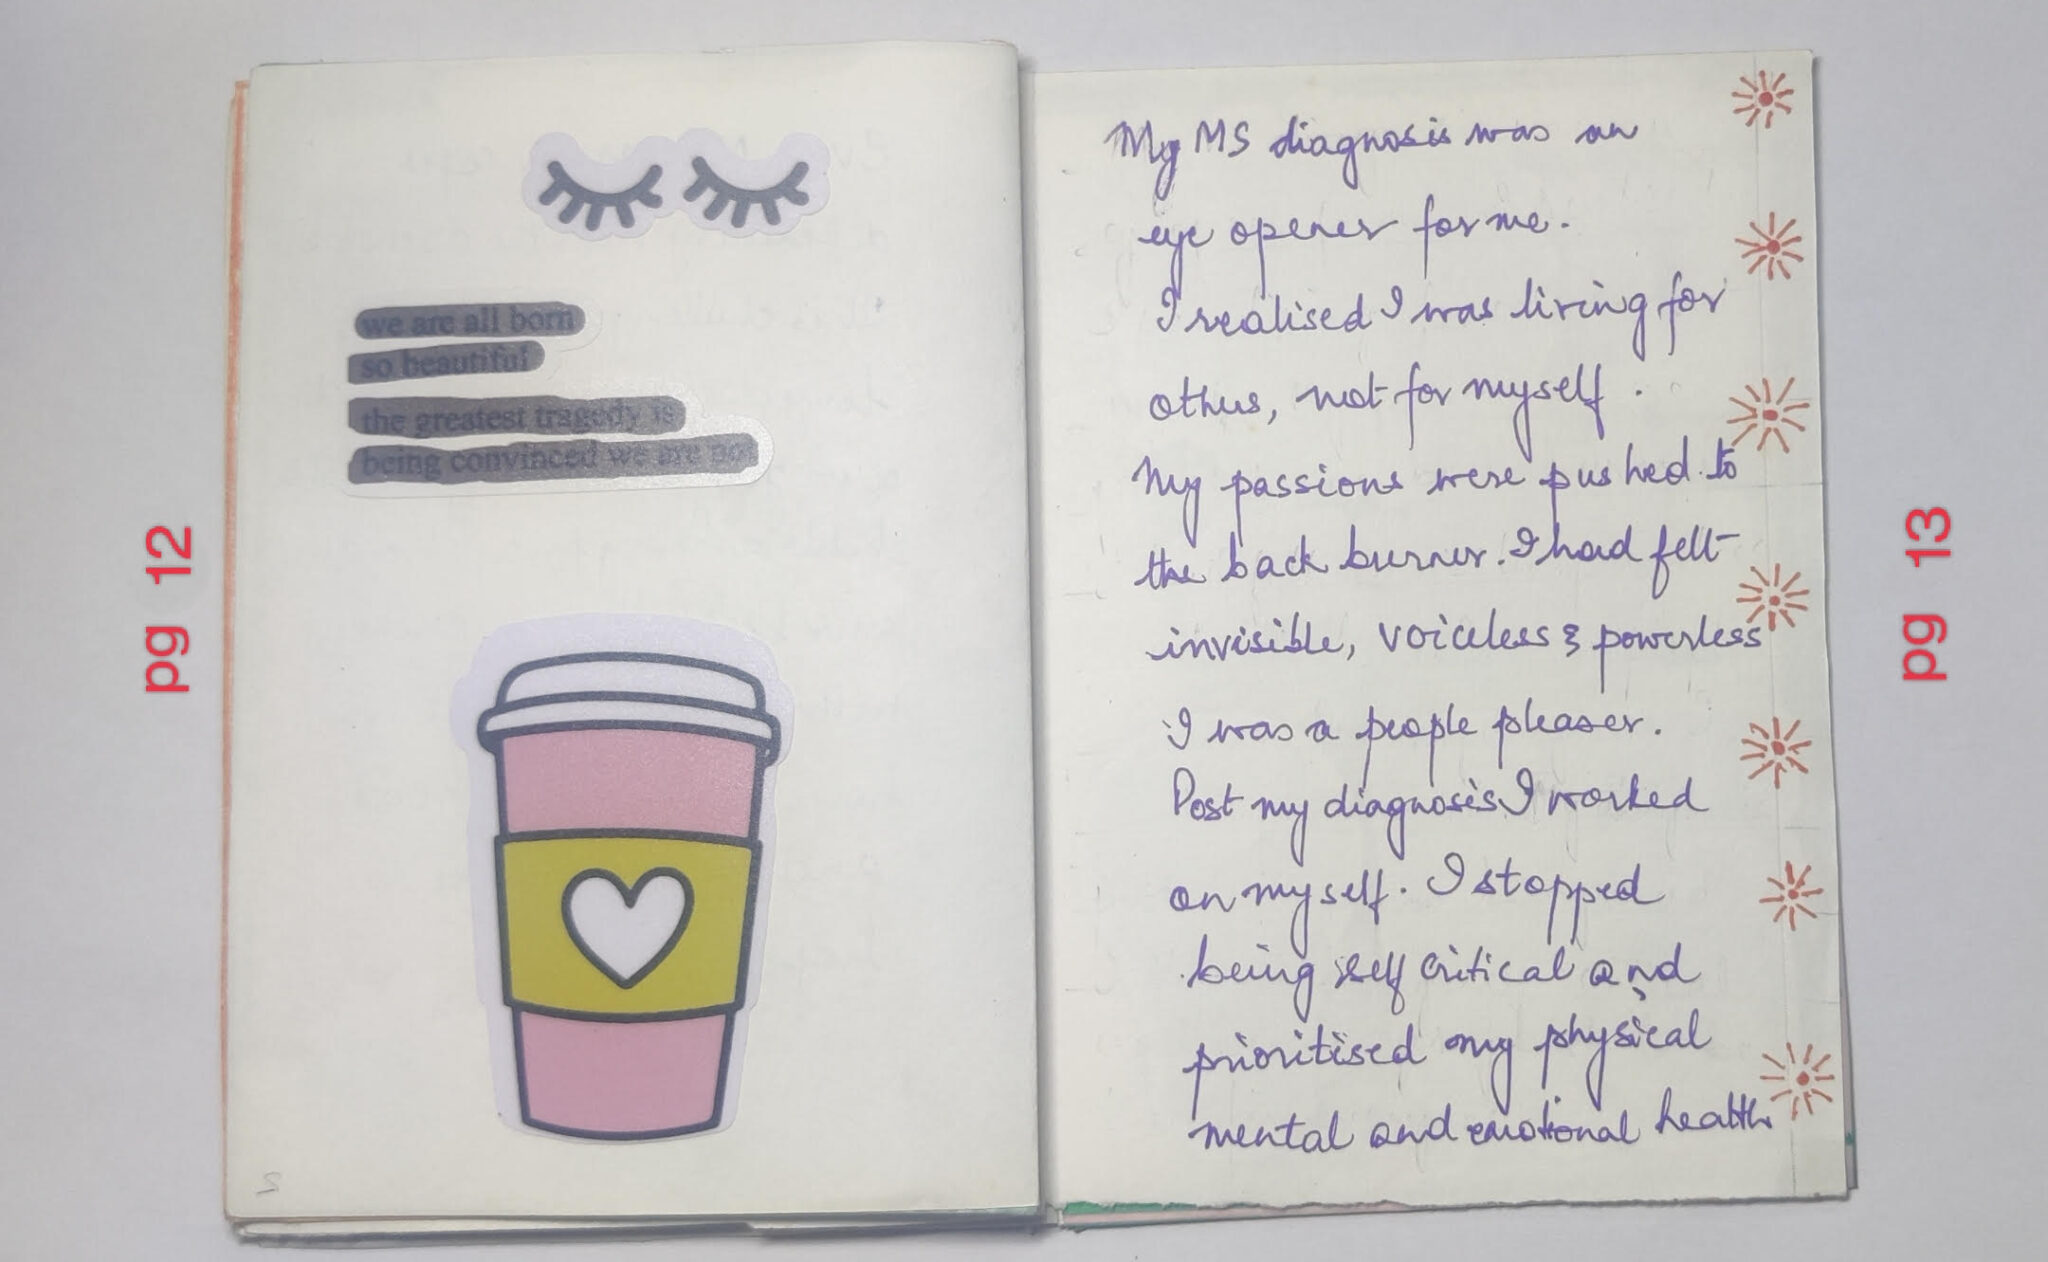 pg 12
we are all born
so beautiful
the greatest tragedy is
being convinced we are not
My MS diagnosis was an
eye opener for me.
I realised I was living for
others, not for myself.
My passions were pushed to
the back burner. I had felt
invisible, voiceless & powerless
I was a people pleaser.
Post my diagnosis I worked
on myself. I stopped
being self critical and
prioritised my physical
mental and emotional health
pg 13